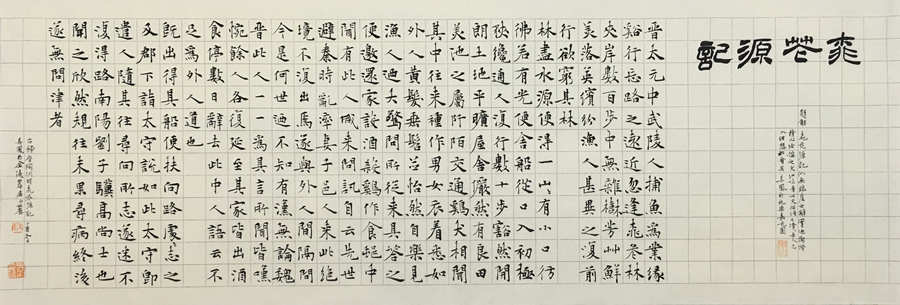 桃花源記
晉太元中武陵人捕魚為業緣
谿行忘路之遠近忽逢桃花林
夾岸數百步中無雜樹芳艸鮮
美落英繽紛漁人甚異之復前
行欲窮其林
林盡水源便得一山山有小口彷
彿若有光便舍船從口入初極
狹纔通人復行數十步豁然開
朗土地平曠屋舍儼然有良田
美池之屬阡陌交通雞犬相聞
其中往來種作男女衣着悉如
外人黃髮垂髫並怡然自樂見
漁人迺大驚問所從來具答之
便邀還家設酒殺鷄作食邨中
聞有此人咸來問訊自云先世
避秦時亂率妻子邑人來此絕
境不復出焉遂與外人間隔問
今是何世迺不知有漢無論魏
晉此人一一為具言所聞皆嘆
惋餘人各復延至其家皆出酒
食停數日辭去此中人語云不
足為外人道也
既出得其船便扶向路處々志之
及郡下詣太守說如此太守即
遣人隨其往尋向所志遂迷不
復得路南陽劉子驥高尚士也
聞之欣然規往未果尋病終後
遂無問津者